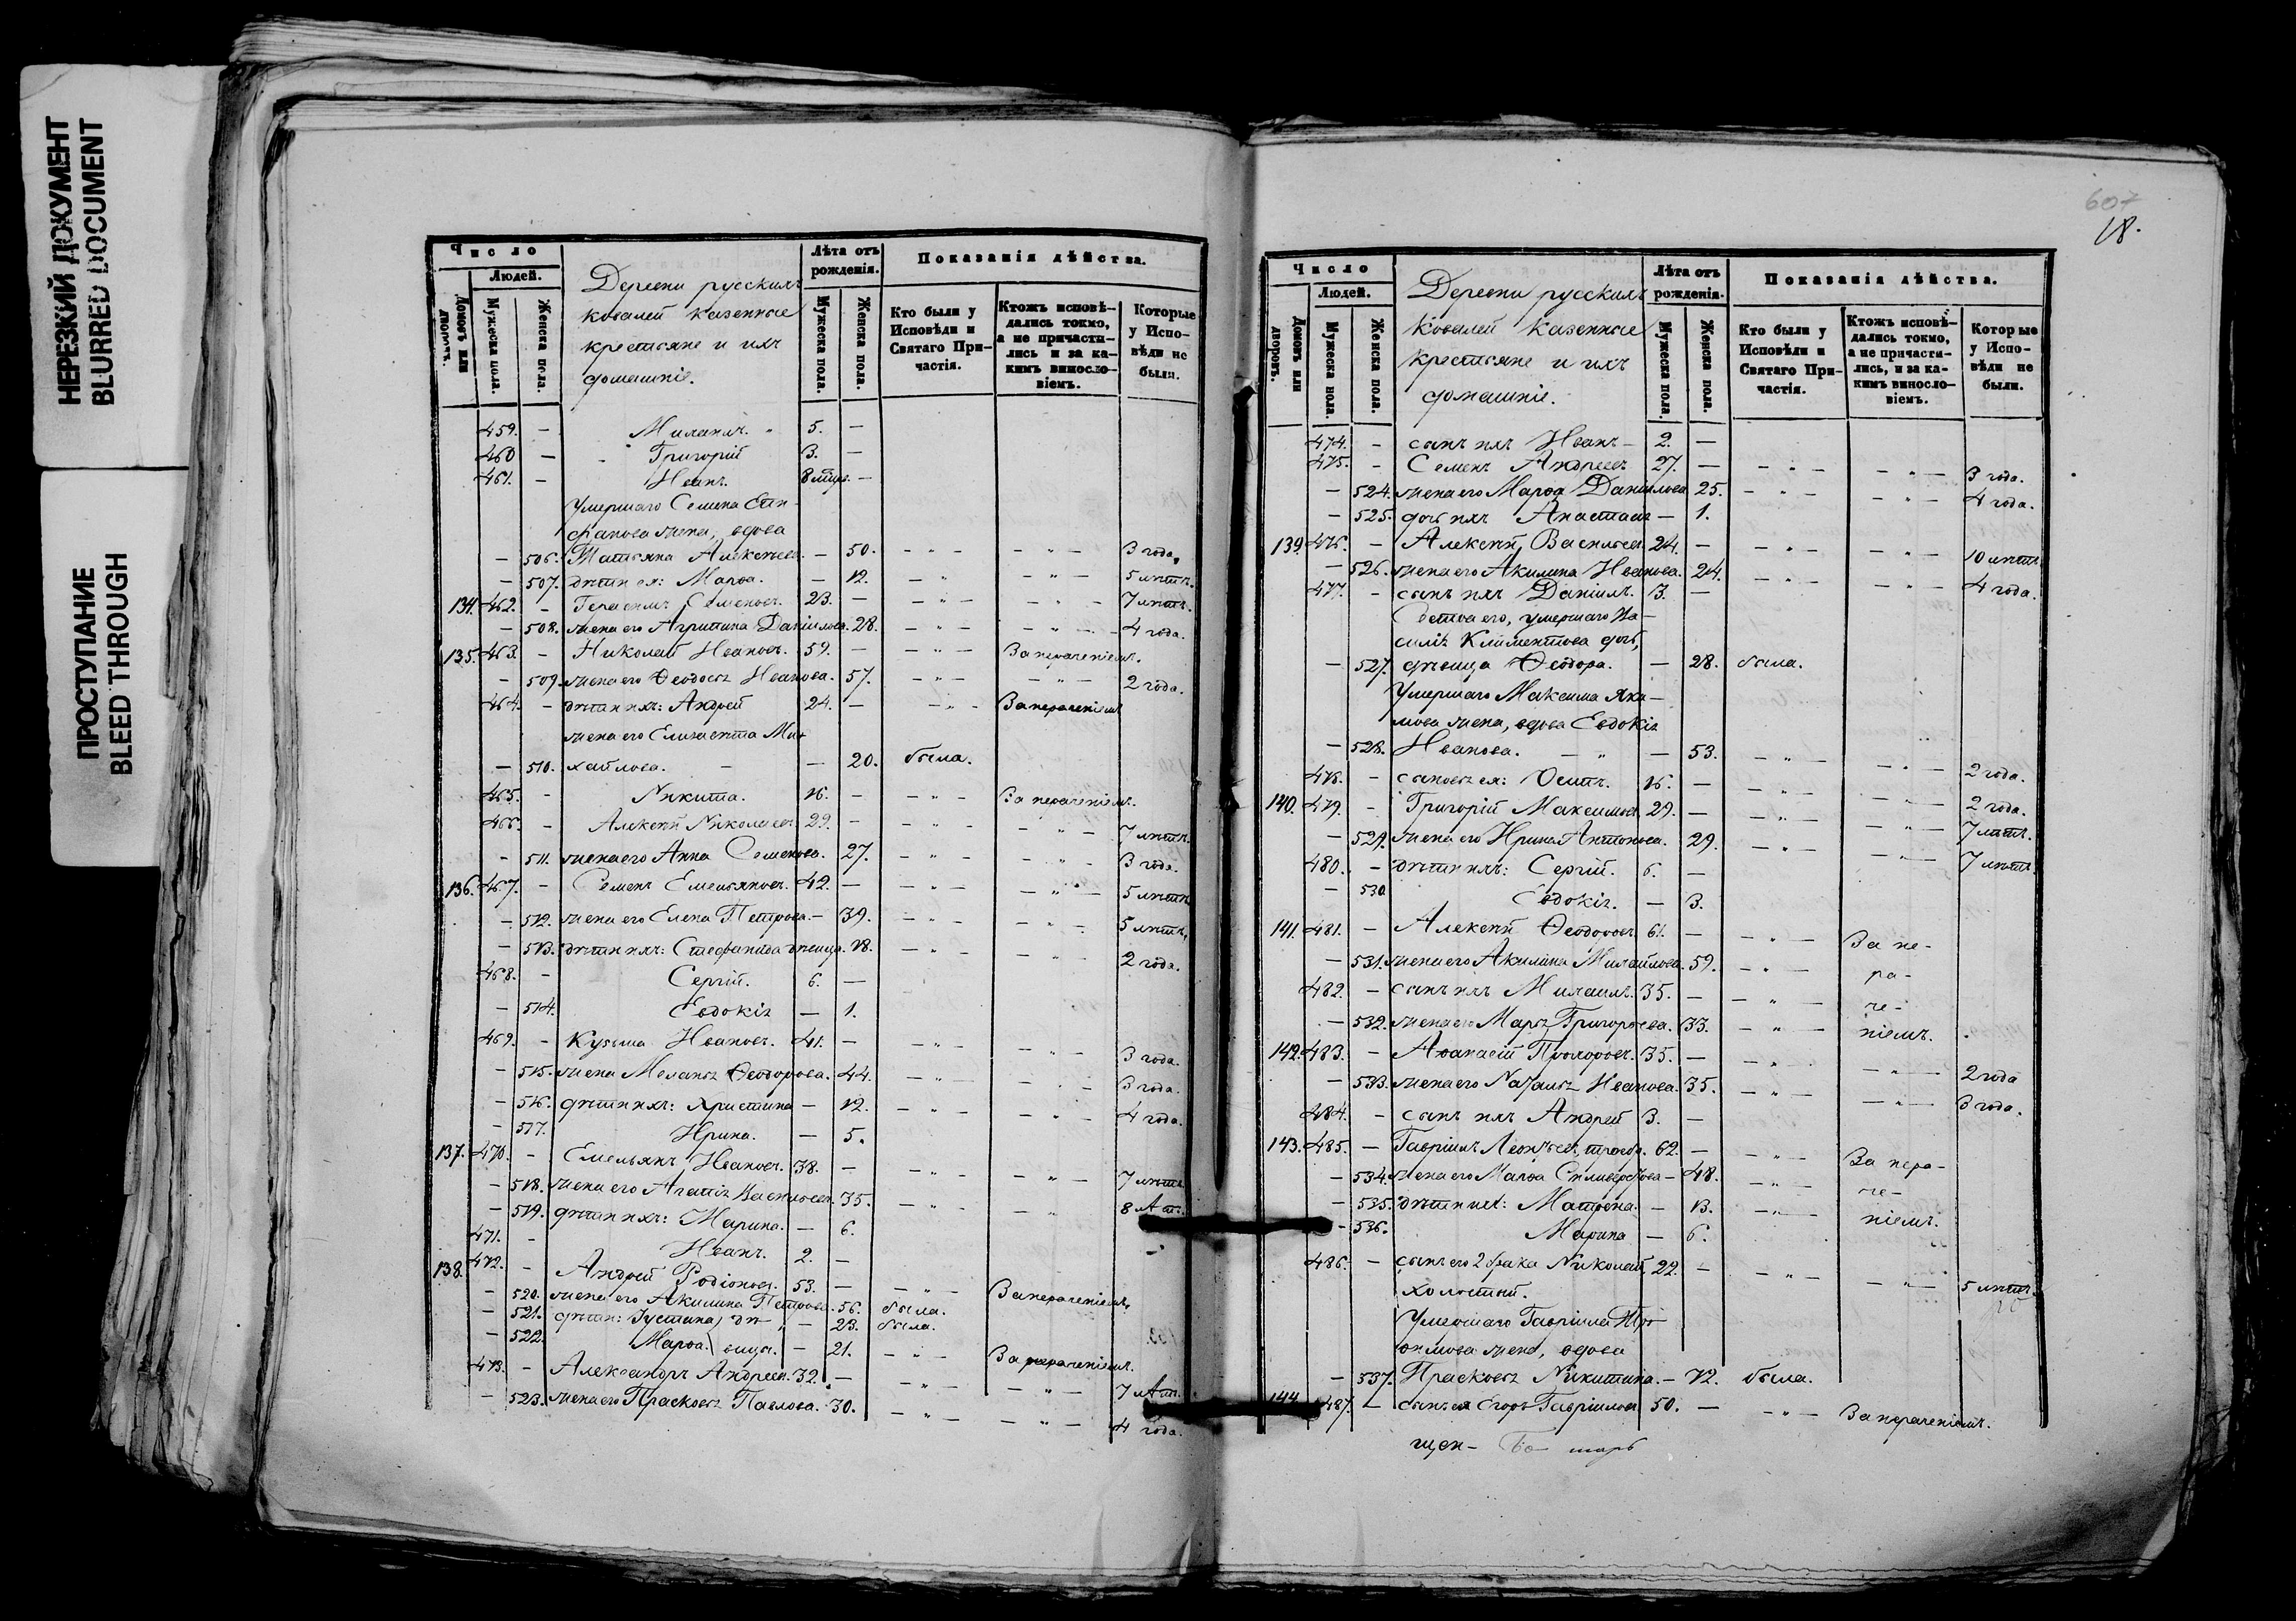 НЕРЕЗКИЙ ДОКУМЕНТ
BLURRED DOCUMENT
ПРОСТУПАНИЕ
BLEED THROUGH
Число
Людей.
Домовъ или дворовъ.
Мужеска пола.
Женска пола.
Деревни русскихъ
ковалей казенные
крестьяне и ихъ
домашніе.
Лѣта отъ рожденія.
Мужеска пола.
Женска пола.
Показанія дѣйства.
Кто были у Исповѣди и Святаго Причастія.
Ктожъ исповѣдались токмо, а не причастились и за какимъ винословіемъ.
Которые у Исповѣди не были.
459. — Михаилъ. 5. —
460 — Григорій 3. —
461. — Иванъ. 8 мѣс. —
Умершаго Семена Епи-
фанова жена, вдова
— 506. Татьяна Алексѣева. — 50. — „ — — „ — 3 года,
— 507. дѣти ея: Марѳа. — 12. — „ — „ — 5 лѣтъ.
134. 462. — Герасимъ Семеновъ. 23. — — „ — — „ — 7 лѣтъ.
— 508. жена его Агрипина Даніилова. 28. — „ — — „ — 4 года.
135. 463. — Николай Ивановъ. 59. — — „ — За нераченіемъ.
— 509. жена его Ѳеодосія Иванова. 57. — „ — — „ — 2 года.
464. — дѣти ихъ: Андрей 24. — — „ — За нераченіемъ
жена его Елизавета Ми-
— 510. хайлова. — — 20. была.
465. — Никита. 16. — — „ — За нераченіемъ.
466. — Алексѣй Николаевъ 29. — — „ — — „ — 7 лѣтъ.
— 511. жена его Анна Семенова. 27. — „ — — „ — 3 года.
136. 467. — Семенъ Емельяновъ. 42. — — „ — — „ — 5 лѣтъ
— 512. жена его Елена Петрова. — 39. — „ — — „ — 5 лѣтъ,
— 513. дѣти ихъ: Стефанида дѣвица. 18. — „ — — „ — 2 года.
468. — Сергій. 6. —
— 514. Евдокія — 1.
469. — Кузьма Ивановъ. 41. — — „ — — „ — 3 года.
— 515. жена Меланія Ѳеодорова. 44. — „ — — „ — 3 года.
— 516. дѣти ихъ: Христина — 12. — „ — — „ — 4 года.
— 517. Ирина. — 5.
137. 470. — Емельянъ Ивановъ. 38. — — „ — — „ — 7 лѣтъ.
— 518. жена его Агапія Васильева. 35. — „ — — „ 8 лѣт.
— 519. дѣти ихъ: Марина. — 6.
471. — Иванъ. 2. —
138. 472. — Андрей Родіоновъ. 53. — — „ — За нераченіемъ,
— 520. жена его Акилина Петрова. 56. была.
— 521. дѣти: Іустина) дѣ- — 23. была.
— 522. Марѳа.) вицы. — 21. — „ — За нераченіемъ.
473. — Александръ Андреев. 32. — — „ — — „ — 7 лѣт.
— 523. жена его Прасковія Павлова. 30. — „ — — „ — 4 года.
607
18.
Число
Людей.
Домовъ или дворовъ.
Мужеска пола.
Женска пола.
Деревни русскихъ
Ковалей казенные
крестьяне и ихъ
домашніе.
Лѣта отъ рожденія.
Мужеска пола.
Женска пола.
Показанія дѣйства.
Кто были у Исповѣди и Святаго Причастія.
Ктожъ исповѣдались токмо, а не причастились, и за какимъ винословіемъ.
Которые у Исповѣди не были.
474. — сынъ ихъ Иванъ — 2. —
475. — Семенъ Андреевъ 27. — — „ — — „ — 3 года.
— 524. жена его Марѳа Данилова 25. — „ — — „ — 4 года.
— 525. дочь ихъ Анастасія — 1.
139. 476. — Алексѣй Васильевъ. 24. — — „ — — „ — 10 лѣтъ
— 526. жена его Акилина Иванова. 24. — „ — — „ — 4 года.
477. — сынъ ихъ Даніилъ. 3. —
Сестра его, умершаго Ва-
силія Климентова дочь,
— 527. дѣвица Ѳеодора. — 28. была.
Умершаго Максима Яки-
мова жена, вдова Евдокія
— 528. Иванова. — „ — 53. — „ — — „ — 2 года.
478. — сыновья ея: Осипъ. 16. — — „ — — „ — 2 года.
140. 479. — Григорій Максимовъ. 29. — — „ — — „ — 7 лѣтъ.
— 529. жена его Ирина Антонова. 29. — „ — — „ — 7 лѣтъ.
480. — дѣти ихъ: Сергій. 6. —
— 530. Евдокія. — 3.
141. 481. — Алексѣй Ѳеодоровъ. 61. — — „ — За не-
— 531. жена его Акилина Михайлова. 59. — „ — ра-
482. — сынъ ихъ Михаилъ. 35. — — „ — че-
— 532. жена его Марія Григорьева. 33. — „ — ніемъ.
142. 483. — Аѳанасій Прохоровъ. 35. — — „ — — „ — 2 года
— 533. жена его Наталія Иванова. 35. — „ — — „ — 3 года.
484. — сынъ ихъ Андрей 3. —
143. 485. — Гавріилъ Леонтьев, 62. — — „ — За нера-
— 534. жена его Марѳа Сильверстова — 48. — „ — че-
— 535. дѣти ихъ: Матрена. — 13. — „ — ніемъ.
— 536. Марина — 6.
486. — сынъ его 2 брака Николай, 22. — — „ — — „ — 5 лѣтъ.
холостый.
Умершаго Гавріила Тро-
фимова жена, вдова
— 537. Прасковія Никитина. — 72. была.
144. 487. — сынъ ея Егоръ Гавріиловъ 50. — — „ — За нераченіемъ.